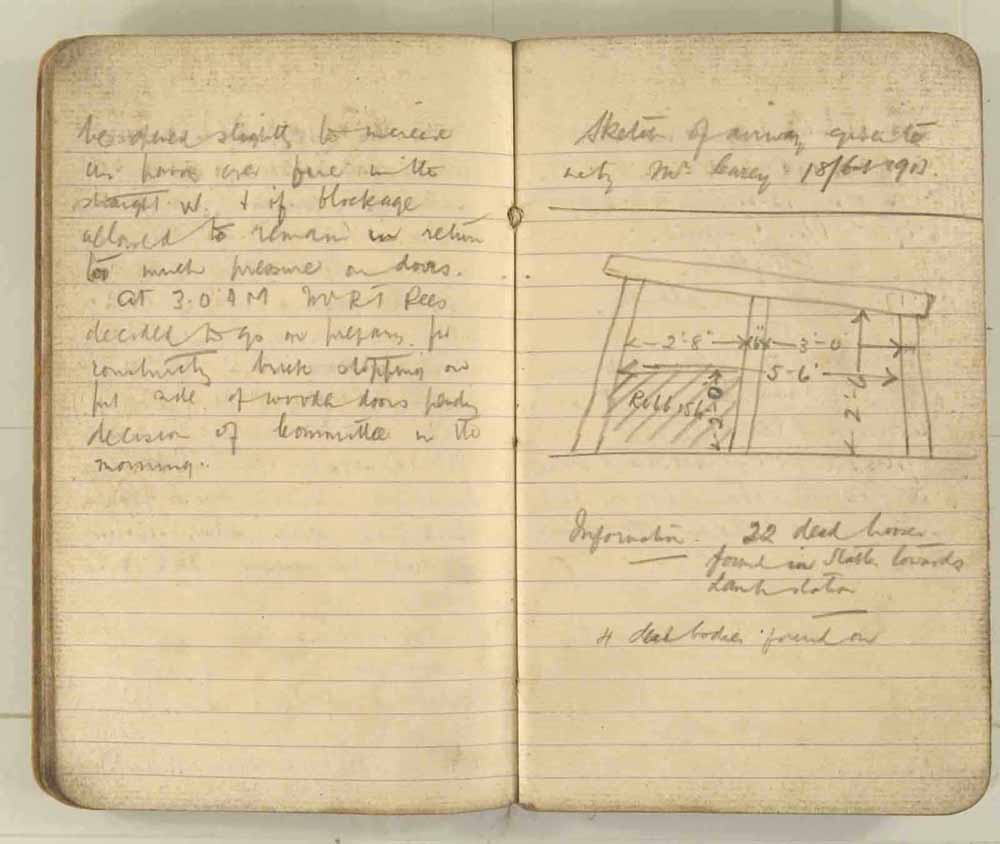 be opened slightly to increase
air passing over fire in the
straight w. & if blockage
allowed to remain in return
too much pressure on doors.
At 3.0 AM Mr R T Rees
decided to go on preparing for
constructing brick stopping on
side of wooden doors pending
decision of Committee in the
morning.
Sketch of airway given to
me by Mr Carey 18/ 1913.
2'-8" 6" 3'-0
5-6"
Rubbish
2'-0
2'-
Information. 22 dead horses
found in Stable towards
Lamp station
4 dead bodies found on